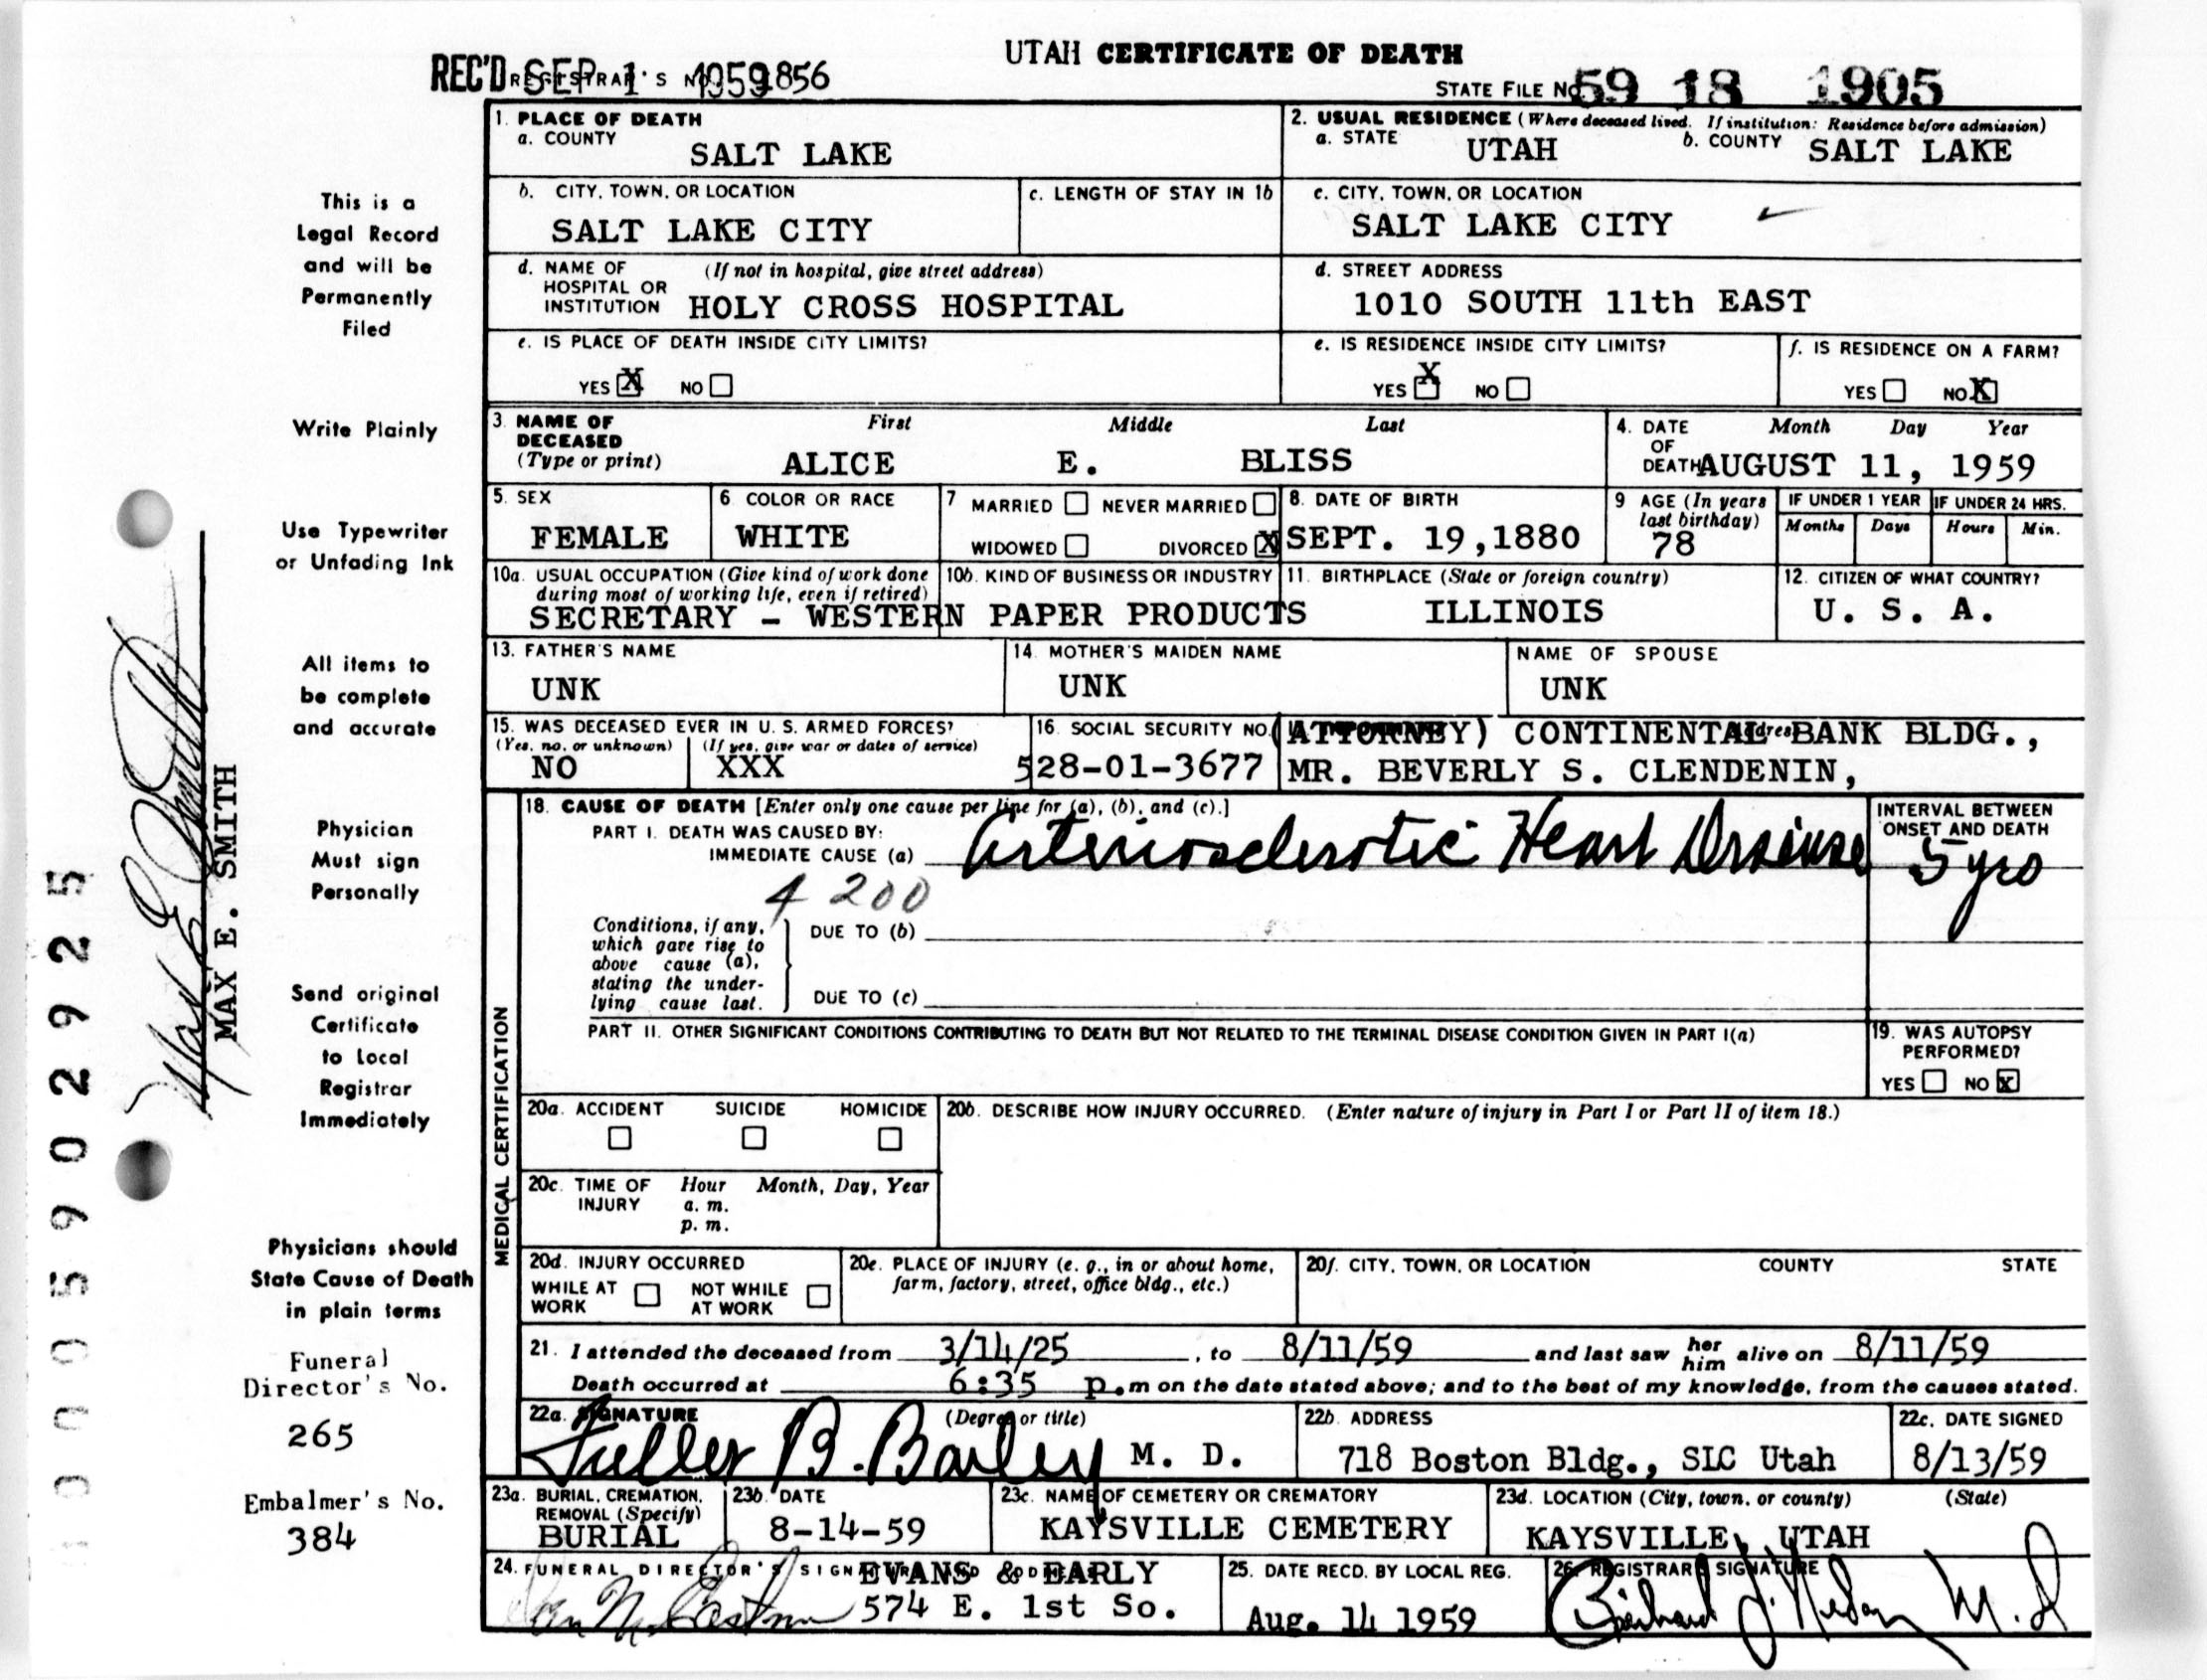 UTAH CERTIFICATE OF DEATH
REC'D SEP 1 1959
REGISTRAR'S NO. 1856
STATE FILE NO. 59 18 1905
1. PLACE OF DEATH
a. COUNTY
SALT LAKE
2. USUAL RESIDENCE (Where deceased lived. If institution: Residence before admission)
a. STATE UTAH b. COUNTY SALT LAKE
b. CITY, TOWN, OR LOCATION
SALT LAKE CITY
c. LENGTH OF STAY IN 1b
c. CITY, TOWN, OR LOCATION
SALT LAKE CITY
d. NAME OF HOSPITAL OR INSTITUTION (If not in hospital, give street address)
HOLY CROSS HOSPITAL
d. STREET ADDRESS
1010 SOUTH 11th EAST
e. IS PLACE OF DEATH INSIDE CITY LIMITS?
YES X NO
e. IS RESIDENCE INSIDE CITY LIMITS?
YES X NO
f. IS RESIDENCE ON A FARM?
YES NO X
3. NAME OF DECEASED (Type or print)
First Middle Last
ALICE E. BLISS
4. DATE OF DEATH Month Day Year
AUGUST 11, 1959
5. SEX
FEMALE
6. COLOR OR RACE
WHITE
7 MARRIED NEVER MARRIED
WIDOWED DIVORCED X
8. DATE OF BIRTH
SEPT. 19,1880
9 AGE (In years last birthday)
78
IF UNDER 1 YEAR
Months Days
IF UNDER 24 HRS.
Hours Min.
10a. USUAL OCCUPATION (Give kind of work done during most of working life, even if retired)
10b. KIND OF BUSINESS OR INDUSTRY
SECRETARY - WESTERN PAPER PRODUCTS
11. BIRTHPLACE (State or foreign country)
ILLINOIS
12. CITIZEN OF WHAT COUNTRY?
U. S. A.
13. FATHER'S NAME
UNK
14. MOTHER'S MAIDEN NAME
UNK
NAME OF SPOUSE
UNK
15. WAS DECEASED EVER IN U. S. ARMED FORCES?
(Yes, no, or unknown) (If yes, give war or dates of service)
NO XXX
16. SOCIAL SECURITY NO.
528-01-3677
(ATTORNEY) CONTINENTAL BANK BLDG.,
Address
MR. BEVERLY S. CLENDENIN,
MEDICAL CERTIFICATION
18. CAUSE OF DEATH [Enter only one cause per line for (a), (b), and (c).]
PART I. DEATH WAS CAUSED BY:
IMMEDIATE CAUSE (a) Arteriosclerotic Heart Disease
INTERVAL BETWEEN ONSET AND DEATH
5 yrs
4200
Conditions, if any, which gave rise to above cause (a), stating the underlying cause last.
DUE TO (b)
DUE TO (c)
PART II. OTHER SIGNIFICANT CONDITIONS CONTRIBUTING TO DEATH BUT NOT RELATED TO THE TERMINAL DISEASE CONDITION GIVEN IN PART I(a)
19. WAS AUTOPSY PERFORMED?
YES NO X
20a. ACCIDENT SUICIDE HOMICIDE
20b. DESCRIBE HOW INJURY OCCURRED. (Enter nature of injury in Part I or Part II of item 18.)
20c. TIME OF INJURY Hour Month, Day, Year
a. m.
p. m.
20d. INJURY OCCURRED
WHILE AT WORK NOT WHILE AT WORK
20e. PLACE OF INJURY (e. g., in or about home, farm, factory, street, office bldg., etc.)
20f. CITY, TOWN, OR LOCATION COUNTY STATE
21. I attended the deceased from 3/14/25, to 8/11/59 and last saw her him alive on 8/11/59
Death occurred at 6:35 p.m on the date stated above; and to the best of my knowledge, from the causes stated.
22a. SIGNATURE (Degree or title)
Fuller B. Bailey M. D.
22b. ADDRESS
718 Boston Bldg., SLC Utah
22c. DATE SIGNED
8/13/59
23a. BURIAL, CREMATION, REMOVAL (Specify)
BURIAL
23b. DATE
8-14-59
23c. NAME OF CEMETERY OR CREMATORY
KAYSVILLE CEMETERY
23d. LOCATION (City, town, or county) (State)
KAYSVILLE, UTAH
24. FUNERAL DIRECTOR'S SIGNATURE AND ADDRESS
EVANS & EARLY
574 E. 1st So.
25. DATE RECD. BY LOCAL REG.
Aug. 14 1959
26. REGISTRAR'S SIGNATURE
M.D
This is a
Legal Record
and will be
Permanently
Filed
Write Plainly
Use Typewriter
or Unfading Ink
All items to
be complete
and accurate
Physician
Must sign
Personally
Send original
Certificate
to Local
Registrar
Immediately
Physicians should
State Cause of Death
in plain terms
Funeral
Director's No.
265
Embalmer's No.
384
Max E. Smith
MAX E. SMITH
0005902925